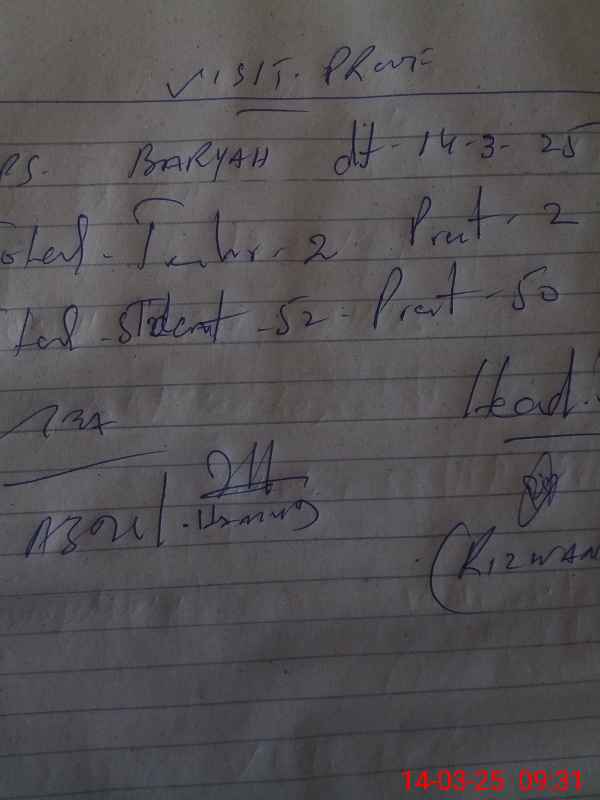 VISIT. PROOF
PS. BARYAH dt - 14-3-25
Total - Teacher - 2 Prest - 2
Total - Student - 52 - Prest - 50
Head
ABDUL
(RIZWAN
14-03-25 09:31